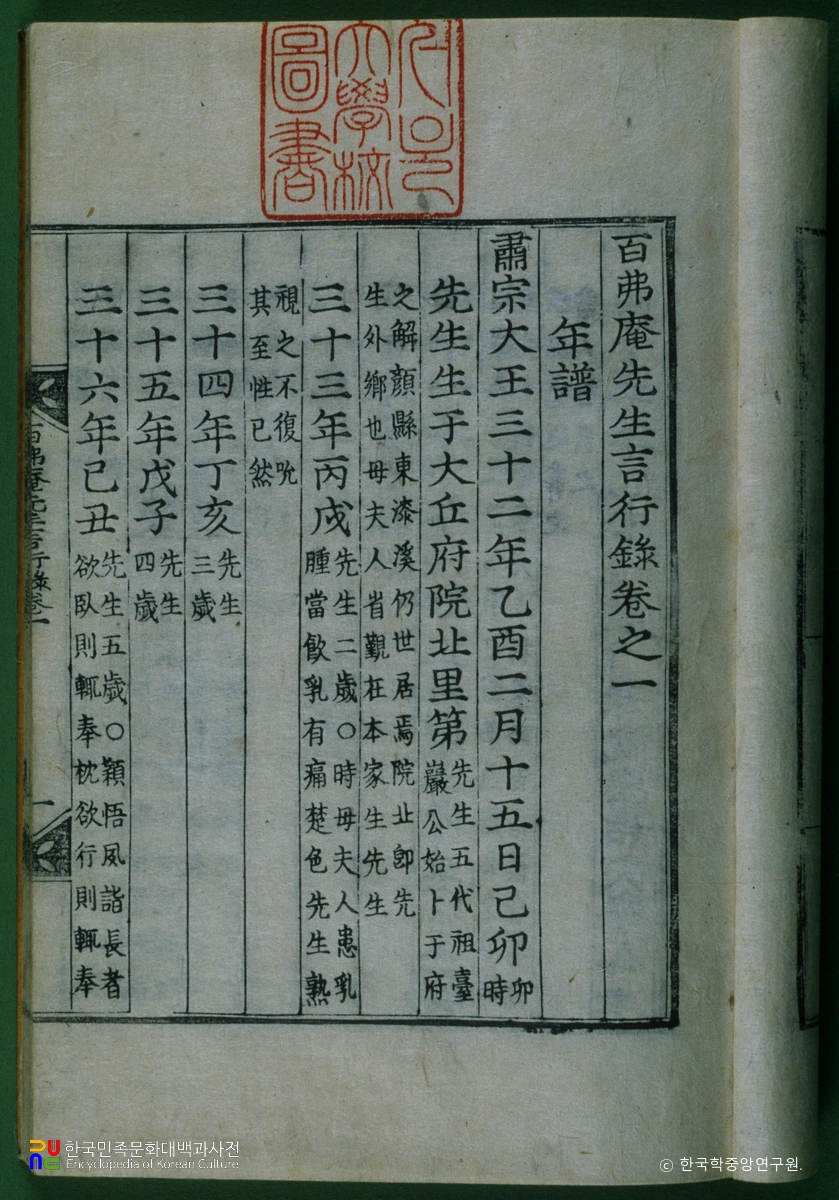 大學校
圖書
百弗庵先生言行錄卷之一
年譜
肅宗大王三十二年乙酉二月十五日己卯卯時
先生生于大丘府院北里第先生五代祖臺
巖公始卜于府
之解顔縣東漆溪仍世居焉院北卽先
生外鄕也母夫人省覲在本家生先生
三十三年丙戌先生二歲○時母夫人患乳
腫當飮乳有痛楚色先生熟
視之不復吮
其至性已然
三十四年丁亥先生
三歲
三十五年戊子先生
四歲
三十六年己丑先生五歲○穎悟夙詣長者
欲臥則輒奉枕欲行則輒奉
百弗庵先生言行錄卷一
一
한국민족문화대백과사전
Encyclopedia of Korean Culture
© 한국학중앙연구원.